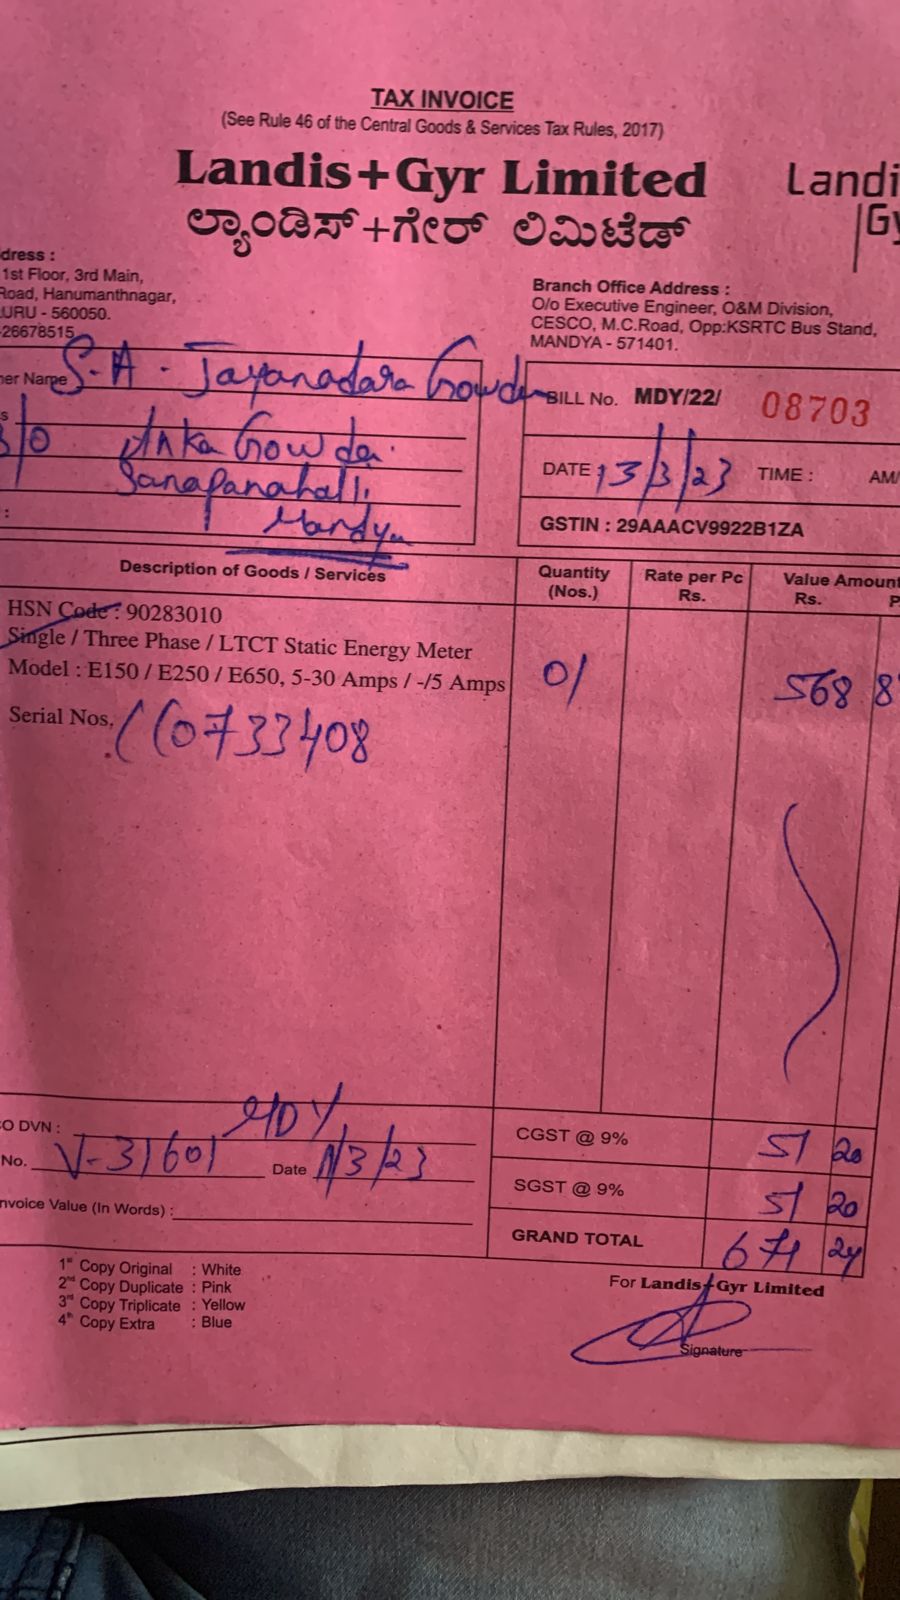 TAX INVOICE
(See Rule 46 of the Central Goods & Services Tax Rules, 2017)
Landis+Gyr Limited
Landi
Gy
ಲ್ಯಾಂಡಿಸ್+ಗೇರ್ ಲಿಮಿಟೆಡ್
dress :
1st Floor, 3rd Main,
Road, Hanumanthnagar,
URU - 560050.
26678515
Branch Office Address :
O/o Executive Engineer, O&M Division,
CESCO, M.C.Road, Opp:KSRTC Bus Stand,
MANDYA - 571401.
er Name S.A. Jayanadara Gowda
S/o Anka Gowda
Mandya
BILL No. MDY/22/ 08703
DATE 13/3/23 TIME : AM/
GSTIN : 29AAACV9922B1ZA
Description of Goods / Services Quantity (Nos.) Rate per Pc Rs. Value Amount Rs. P
HSN Code : 90283010
Single / Three Phase / LTCT Static Energy Meter
Model : E150 / E250 / E650, 5-30 Amps / -/5 Amps 01 568 8
Serial Nos. 0733408
O DVN : MDY
No. V-31601 Date /3/23
nvoice Value (In Words) :
CGST @ 9% 51 20
SGST @ 9% 51 20
GRAND TOTAL 671 24
1st Copy Original : White
2nd Copy Duplicate : Pink
3rd Copy Triplicate : Yellow
4th Copy Extra : Blue
For Landis+Gyr Limited
Signature